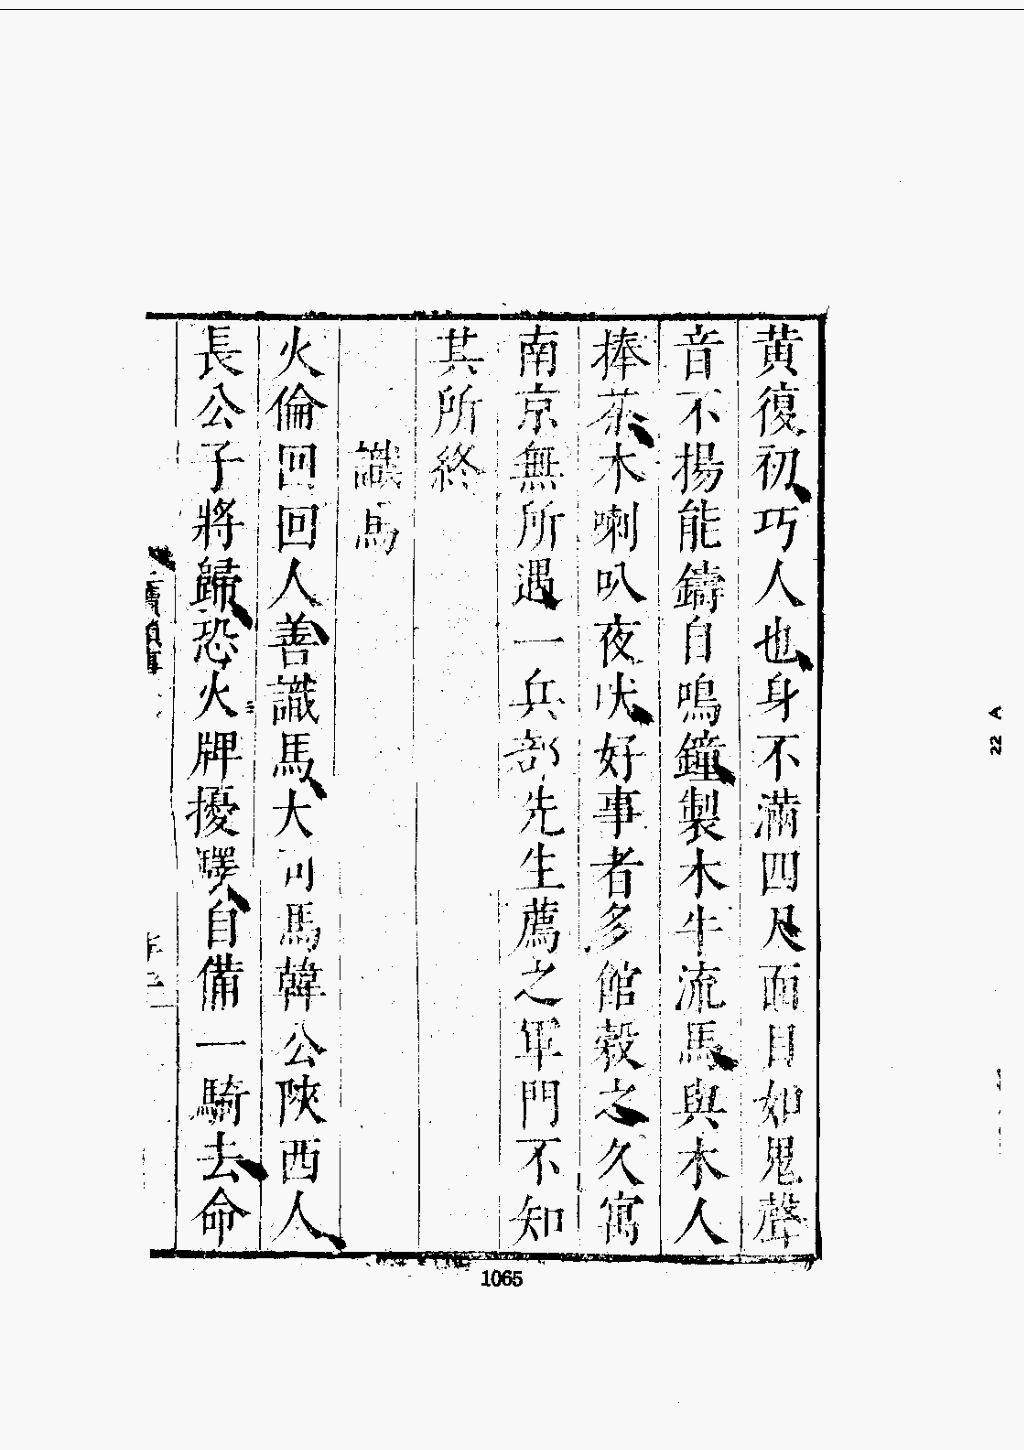 黄復初巧人也身不滿四尺面目如鬼聲
音不揚能鑄自鳴鐘製木牛流馬與木人
捧茶木喇叭夜吠好事者多館穀之久寓
南京無所遇一兵部先生薦之軍門不知
其所終
識馬
火倫回回人善識馬大司馬韓公陝西人
長公子將歸恐火牌擾驛自備一騎去命
1065
22 A